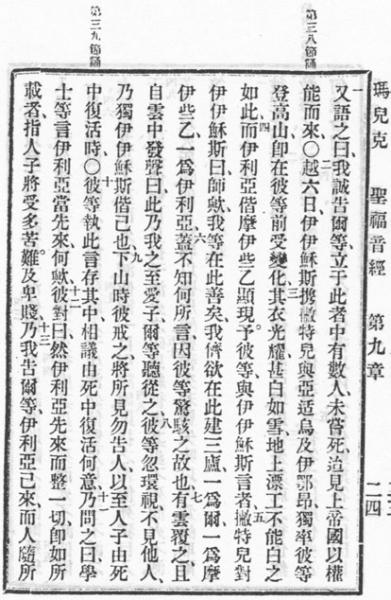 瑪兒克 聖福音經 第九章 二四
第三八節誦
第三九節誦
一又語之曰、我誠告爾等、立于此者中有數人、未嘗死、迨見上帝國以權
能而來○二越六日、伊伊穌斯携撇特兒與亞适烏及伊鄂昂獨率彼等
登高山、卽在彼等前受變化、三其衣光耀、甚白如雪、地上漂工不能白之
如此、四而伊利亞偕摩伊些乙顯現予彼等、與伊伊穌斯言者、五撇特兒對
伊伊穌斯曰、師歟、我等在此善矣、我儕欲在此建三廬、一爲爾、一爲摩
伊些乙、一爲伊利亞、六蓋不知何所言、因彼等驚駭之故也、七有雲覆之、且
自雲中發聲曰、此乃我之至愛子、爾等聽從之、八彼等忽環視、不見他人、
乃獨伊伊穌斯偕己也、九下山時、彼戒之將所見勿告人、以至人子由死
中復活時○十彼等執此言存其中、相議由死中復活何意、十一乃問之曰、學
士等言伊利亞當先來、何歟、十二彼對曰、然伊利亞先來、而整一切、卽如所
載者、指人子將受多苦難及卑賤、十三乃我告爾等、伊利亞已來、而人隨所